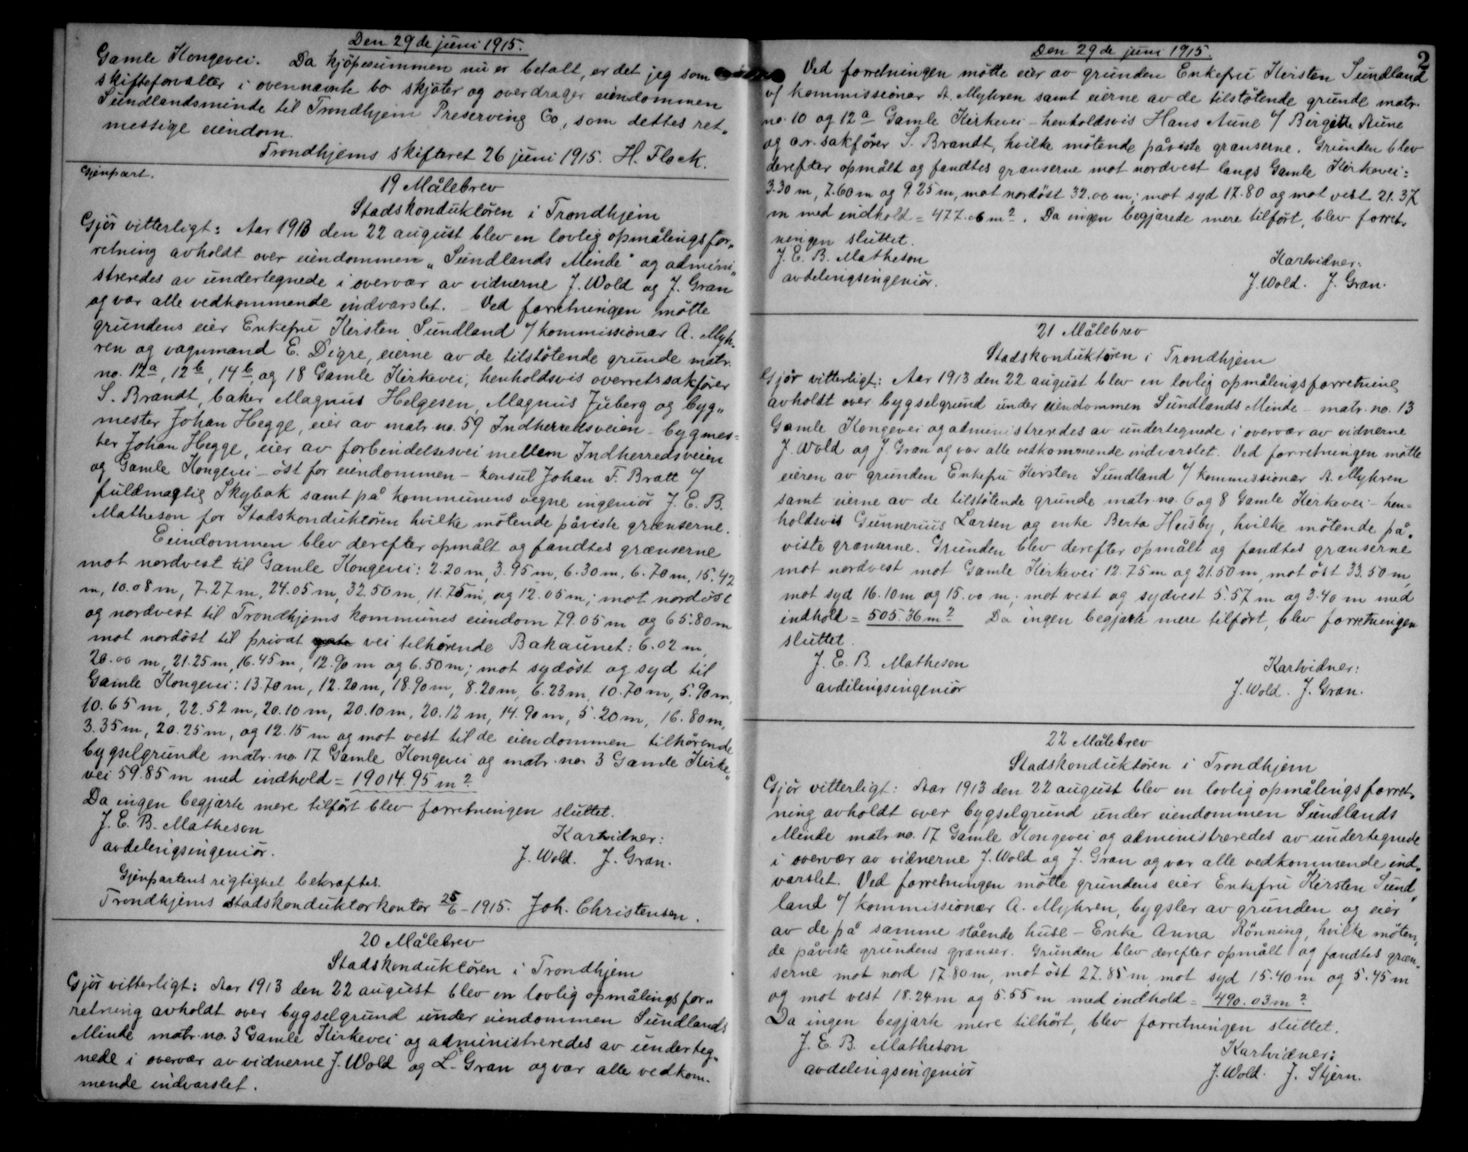 Den 29de juni 1915.
Gamle Kongevei. Da kjöpesummen nu er betalt, er det jeg som
skifteforvalter i ovennævnte bo skjöter og overdrager eiendommen
Sundlandsminde til Trondhjem Preserving Co, som dettes ret-
messige eiendom.
Trondhjems skifteret 26 juni 1915. H. Flock.
Gjenpart.
19 Målebrev
Stadskonduktören i Trondhjem
Gjör vitterligt: Aar 1913 den 22 august blev en lovlig opmålingsfor-
retning avholdt over eiendommen „Sundlands Minde" og admini-
streredes av undertegnede i overvær av vidnerne J. Wold og J. Gran
og var alle vedkommende indvarslet. - Ved forretningen mötte
grundens eier Enkefru Kirsten Sundland v/ kommissionær A. Myh-
ren og vognmand E. Digre, eierne av de tilstötende grunde matr.
no. 12a, 12b, 14b og 18 Gamle Kirkevei, henholdsvis overretssakförer
S. Brandt, baker Magnus Helgesen, Magnus Juberg og byg-
mester Johan Hegge, eier av matr. no. 59 Indherredsveien - bygmes-
ter Johan Hegge, eier av forbindelsesvei mellem Indherredsveien
og Gamle Kongevei - öst for eiendommen - konsul Johan F. Bratt v/
fuldmægtig Skybak samt på kommunens vegne ingeniör J. E. B.
Matheson for Stadskonduktören hvilke mötende påviste grænserne.
Eiendommen blev derefter opmålt og fandtes grænserne
mot nordvest til Gamle Kongevei: 2.20 m, 3.95 m, 6.30 m, 6.70 m, 15.42
m, 10.08 m, 7.27 m, 24.05 m, 32.50 m, 11.75 m, og 12.05 m; mot nordöst
og nordvest til Trondhjems kommunes eiendom 79.05 m og 65.80 m
mot nordöst til privat gate vei tilhörende Bakaunet: 6.02 m,
20.00 m, 21.25 m, 16.45 m, 12.90 m og 6.50 m; mot sydöst og syd til
Gamle Kongevei: 13.70 m, 12.20 m, 18.90 m, 8.20 m, 6.23 m, 10.70 m, 5.90 m,
10.65 m, 22.52 m, 20.10 m, 20.10 m, 20.12 m, 14.90 m, 5.20 m, 16.80 m,
3.35 m, 20.25 m, og 12.15 m og mot vest til de eiendommen tilhörende
bygselgrunde matr. no. 17 Gamle Kongevei og matr. no. 3 Gamle Kirke-
vei 59.85 m med indhold = 19014.95 m2
Da ingen begjærte mere tilfört blev forretningen sluttet.
J. E. B. Matheson
avdelingsingeniör.
Kartvidner:
J. Wold. J. Gran.
Gjenpartens rigtighet bekræftes.
Trondhjems stadskonduktörkontor 25/6 - 1915. Joh. Christensen.
20 Målebrev
Stadskonduktören i Trondhjem
Gjör vitterligt: Aar 1913 den 22 august blev en lovlig opmålingsfor-
retning avholdt over bygselgrund under eiendommen Sundlands
Minde matr. no. 3 Gamle Kirkevei og administreredes av underteg-
nede i overvær av vidnerne J. Wold og L. Gran og var alle vedkom-
mende indvarslet.
Den 29de juni 1915.
2
Ved forretningen mötte eier av grunden Enkefru Kirsten Sundland
v/ kommissionær A. Myhren samt eierne av de tilstötende grunde matr.
no. 10 og 12a Gamle Kirkevei - henholdsvis Hans Aune v/ Birgitte Aune
og o.r.sakförer S. Brandt, hvilke mötende påviste grænserne. Grunden blev
derefter opmålt og fandtes grænserne mot nordvest langs Gamle Kirkevei:
3.30 m, 7.60 m og 9.25 m, mot nordöst 32.00 m; mot syd 17.80 og mot vest 21.37
m med indhold = 477.06 m2. Da ingen begjærede mere tilfört, blev forret-
ningen sluttet.
J. E. B. Matheson
avdelingsingeniör.
Kartvidner:
J. Wold. J. Gran.
21 Målebrev
Stadskonduktören i Trondhjem
Gjör vitterligt: Aar 1913 den 22 august blev en lovlig opmålingsforretning
avholdt over bygselgrund under eiendommen Sundlands Minde - matr. no. 13
Gamle Kongevei og administreredes av undertegnede i overvær av vidnerne
J. Wold og J. Gran og var alle vedkommende indvarslet. Ved forretningen mötte
eieren av grunden Enkefru Kirsten Sundland v/ kommissionær A. Myhren
samt eierne av de tilstötende grunde matr. no. 6 og 8 Gamle Kirkevei - hen-
holdsvis Gunnerius Larsen og enke Berta Heisby, hvilke mötende på-
viste grænserne. Grunden blev derefter opmålt og fandtes grænserne
mot nordvest mot Gamle Kirkevei 12.75 m og 21.50 m, mot öst 33.50 m,
mot syd 16.10 m og 15.00 m, mot vest og sydvest 5.57 m og 3.40 m med
indhold = 505.36 m2 Da ingen begjærte mere tilfört, blev forretningen
sluttet.
J. E. B. Matheson
avdelingsingeniör
Kartvidner:
J. Wold. J. Gran.
22 Målebrev
Stadskonduktören i Trondhjem
Gjör vitterligt: Aar 1913 den 22 august blev en lovlig opmålingsforret-
ning avholdt over bygselgrund under eiendommen Sundlands
Minde matr. no. 17 Gamle Kongevei og administreredes av undertegnede
i overvær av vidnerne J. Wold og J. Gran og var alle vedkommende ind-
varslet. Ved forretningen mötte grundens eier Enkefru Kirsten Sund-
land v/ kommissionær A. Myhren, bygsler av grunden og eier
av de på samme stående huse - Enke Anna Rönning, hvilke möten-
de påviste grundens grænser. Grunden blev derefter opmålt og fandtes græn-
serne mot nord 17.80 m, mot öst 27.85 m, mot syd 15.40 m og 5.45 m
og mot vest 18.24 m og 5.55 m med indhold = 490.03 m2
Da ingen begjærte mere tilhört, blev forretningen sluttet.
J. E. B. Matheson
avdelingsingeniör
Kartvidner:
J. Wold. J. Stjern.